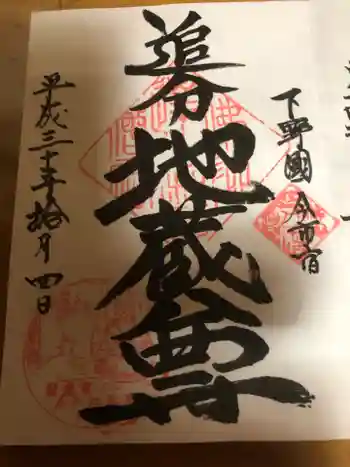 下野國 今市宿
追分地蔵尊
平成三十年拾月四日